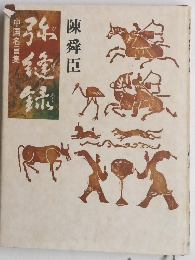 陳舜臣
弥縫録
中国名言集